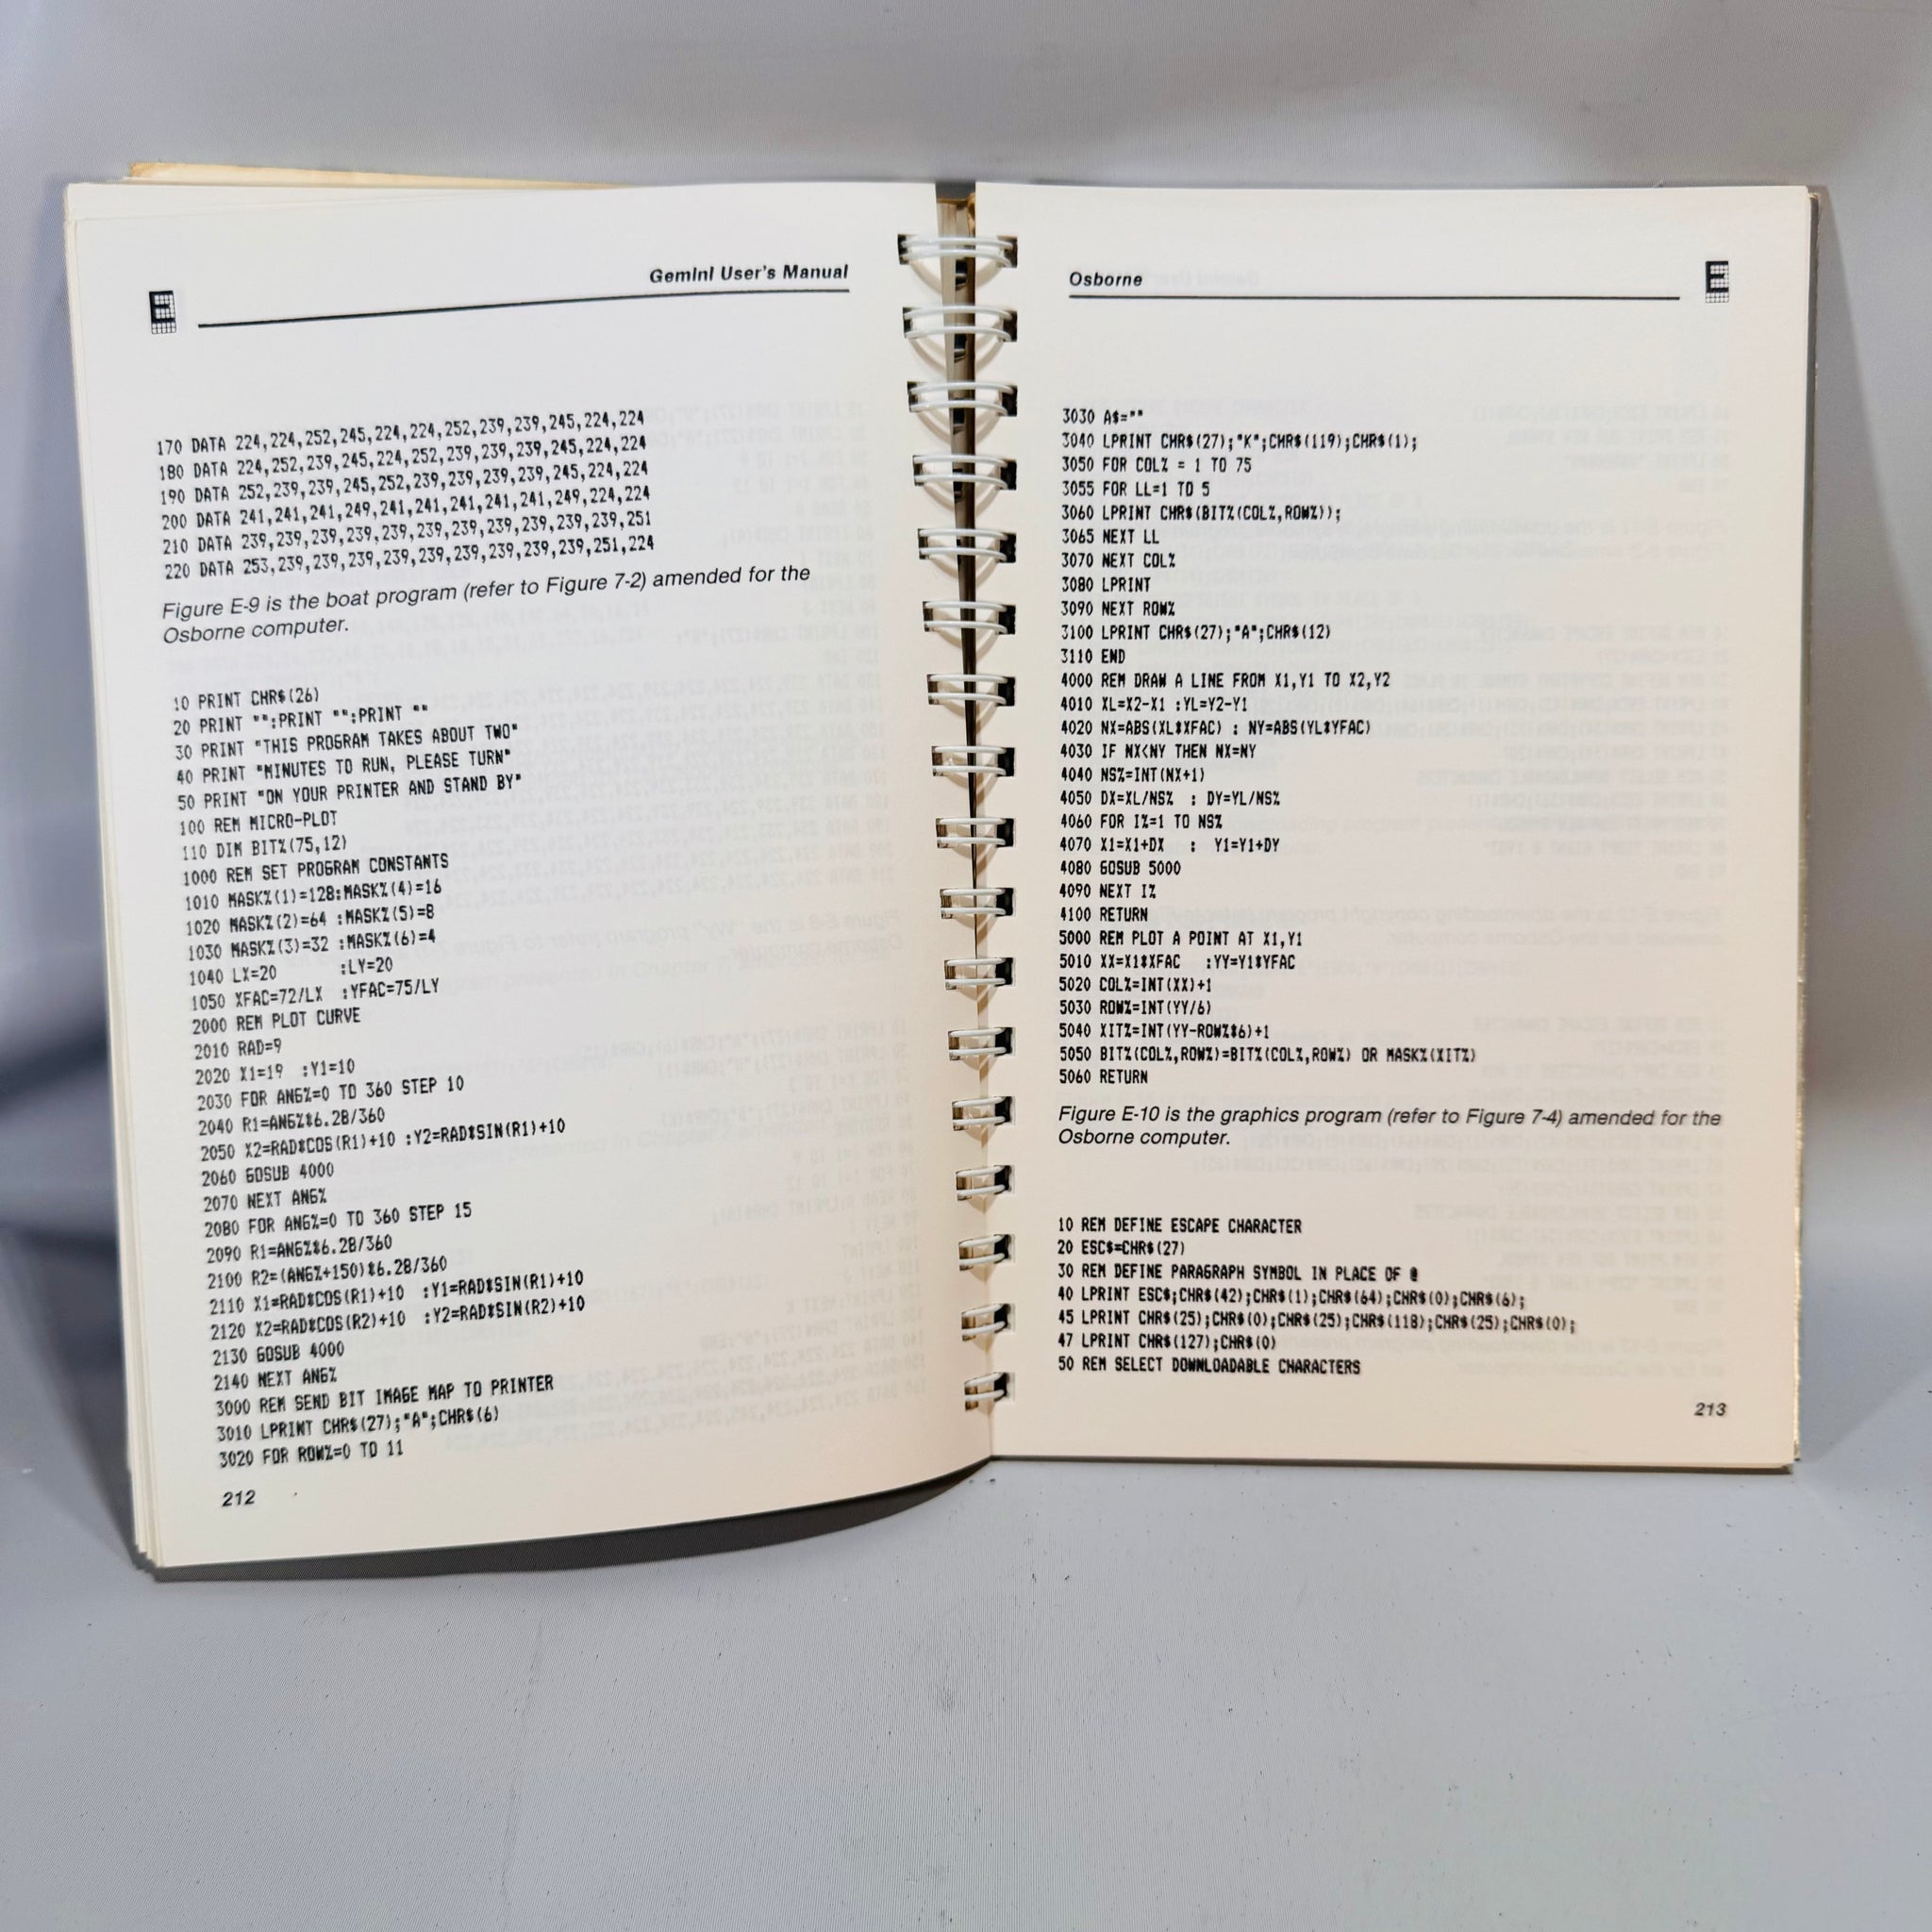 Gemini User's Manual
E
170 DATA 224,224,252,245,224,224,252,239,239,245,224,224
180 DATA 224,252,239,245,224,252,239,239,239,245,224,224
190 DATA 252,239,239,245,252,239,239,239,239,245,224,224
200 DATA 241,241,241,249,241,241,241,241,241,249,224,224
210 DATA 239,239,239,239,239,239,239,239,239,239,239,251
220 DATA 253,239,239,239,239,239,239,239,239,239,251,224
Figure E-9 is the boat program (refer to Figure 7-2) amended for the
Osborne computer.
10 PRINT CHR$(26)
20 PRINT "":PRINT "":PRINT ""
30 PRINT "THIS PROGRAM TAKES ABOUT TWO"
40 PRINT "MINUTES TO RUN, PLEASE TURN"
50 PRINT "ON YOUR PRINTER AND STAND BY"
100 REM MICRO-PLOT
110 DIM BIT%(75,12)
1000 REM SET PROGRAM CONSTANTS
1010 MASK%(1)=128:MASK%(4)=16
1020 MASK%(2)=64 :MASK%(5)=8
1030 MASK%(3)=32 :MASK%(6)=4
1040 LX=20 :LY=20
1050 XFAC=72/LX :YFAC=75/LY
2000 REM PLOT CURVE
2010 RAD=9
2020 X1=19 :Y1=10
2030 FOR ANG%=0 TO 360 STEP 10
2040 R1=ANG%*6.28/360
2050 X2=RAD*COS(R1)+10 :Y2=RAD*SIN(R1)+10
2060 GOSUB 4000
2070 NEXT ANG%
2080 FOR ANG%=0 TO 360 STEP 15
2090 R1=ANG%*6.28/360
2100 R2=(ANG%+150)*6.28/360
2110 X1=RAD*COS(R1)+10 :Y1=RAD*SIN(R1)+10
2120 X2=RAD*COS(R2)+10 :Y2=RAD*SIN(R2)+10
2130 GOSUB 4000
2140 NEXT ANG%
3000 REM SEND BIT IMAGE MAP TO PRINTER
3010 LPRINT CHR$(27);"A";CHR$(6)
3020 FOR ROW%=0 TO 11
212
Osborne
E
3030 A$=""
3040 LPRINT CHR$(27);"K";CHR$(119);CHR$(1);
3050 FOR COL% = 1 TO 75
3055 FOR LL=1 TO 5
3060 LPRINT CHR$(BIT%(COL%,ROW%));
3065 NEXT LL
3070 NEXT COL%
3080 LPRINT
3090 NEXT ROW%
3100 LPRINT CHR$(27);"A";CHR$(12)
3110 END
4000 REM DRAW A LINE FROM X1,Y1 TO X2,Y2
4010 XL=X2-X1 :YL=Y2-Y1
4020 NX=ABS(XL*XFAC) : NY=ABS(YL*YFAC)
4030 IF NX<NY THEN NX=NY
4040 NS%=INT(NX+1)
4050 DX=XL/NS% : DY=YL/NS%
4060 FOR I%=1 TO NS%
4070 X1=X1+DX : Y1=Y1+DY
4080 GOSUB 5000
4090 NEXT I%
4100 RETURN
5000 REM PLOT A POINT AT X1,Y1
5010 XX=X1*XFAC :YY=Y1*YFAC
5020 COL%=INT(XX)+1
5030 ROW%=INT(YY/6)
5040 XIT%=INT(YY-ROW%*6)+1
5050 BIT%(COL%,ROW%)=BIT%(COL%,ROW%) OR MASK%(XIT%)
5060 RETURN
Figure E-10 is the graphics program (refer to Figure 7-4) amended for the
Osborne computer.
10 REM DEFINE ESCAPE CHARACTER
20 ESC$=CHR$(27)
30 REM DEFINE PARAGRAPH SYMBOL IN PLACE OF @
40 LPRINT ESC$;CHR$(42);CHR$(1);CHR$(64);CHR$(0);CHR$(6);
45 LPRINT CHR$(25);CHR$(0);CHR$(25);CHR$(118);CHR$(25);CHR$(0);
47 LPRINT CHR$(127);CHR$(0)
50 REM SELECT DOWNLOADABLE CHARACTERS
213